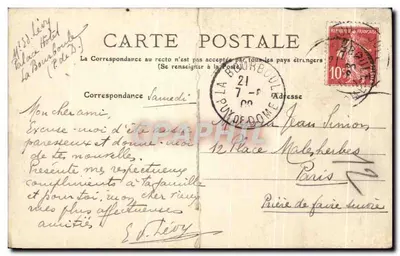 CARTE POSTALE
La Correspondance au recto n'est pas acceptée par tous les pays étrangers
(Se renseigner à la Poste)
Correspondance
Adresse
Palace Hotel
La Bourboule
(P. de D.)
Samedi
Mon cher ami,
Excuse-moi d'être
paresseux et donne-moi
de tes nouvelles.
Présente mes respectueux
compliments à ta famille
et pour toi, mon cher
mes plus affectueuses
amitiés
E. Lévy
LA BOURBOULE
21
7-
09
PUY-DE-DOME
10
Jean Simon
12 Place Malesherbes
Paris
Prière de faire suivre